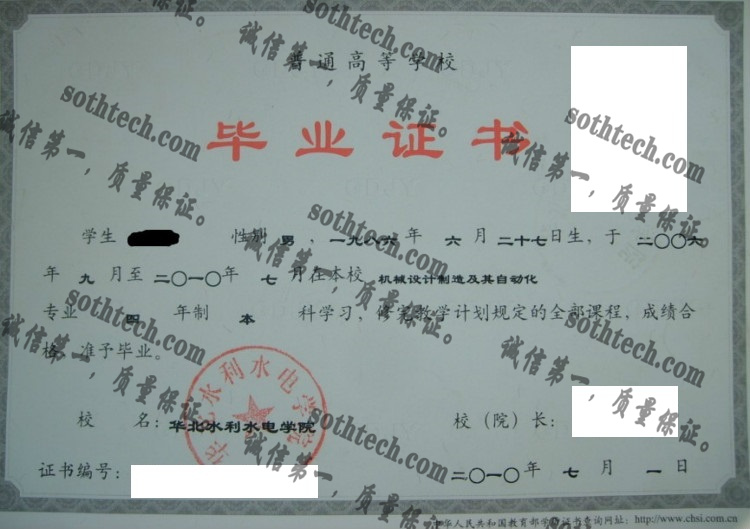 普通高等学校
毕业证书
学生 性别 男 ，一九八六 年 六 月 二十七日生，于 二〇〇六
年 九 月至 二〇一〇年 七 月在本校 机械设计制造及其自动化
专业 四 年制 本 科学习，修完教学计划规定的全部课程，成绩合
格，准予毕业。
校 名：华北水利水电学院
校（院）长：
证书编号：
二〇一〇年 七 月 一日
华人民共和国教育部学历证书查询网址：http://www.chsi.com.cn
华北水利水电学院
sothtech.com
诚信第一，质量保证。
sothtech.com
诚信第一，质量保证。
sothtech.com
诚信第一，质量保证。
sothtech.com
诚信第一，质量保证。
sothtech.com
诚信第一，质量保证。
sothtech.com
诚信第一，质量保证。
sothtech.com
诚信第一，质量保证。
sothtech.com
诚信第一，质量保证。
sothtech.com
诚信第一，质量保证。